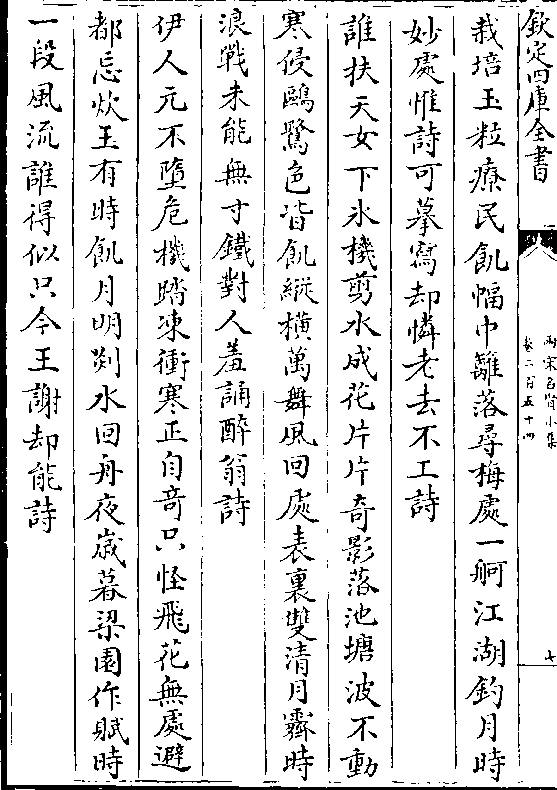 欽定四庫全書
兩宋名賢小集
卷二百五十四
七
栽培玉粒療民飢幅巾籬落尋梅處一舸江湖釣月時
妙處惟詩可摹寫却憐老去不工詩
誰扶天女下氷機剪水成花片片奇影落池塘波不動
寒侵鷗鷺色皆飢縱橫萬舞風回處表裏雙清月霽時
浪戰未能無寸鐵對人羞誦醉翁詩
伊人元不墮危機踏凍衝寒正自竒只怪飛花無處避
都忘炊玉有時飢月明剡水回舟夜歲暮梁園作賦時
一段風流誰得似只今王謝却能詩